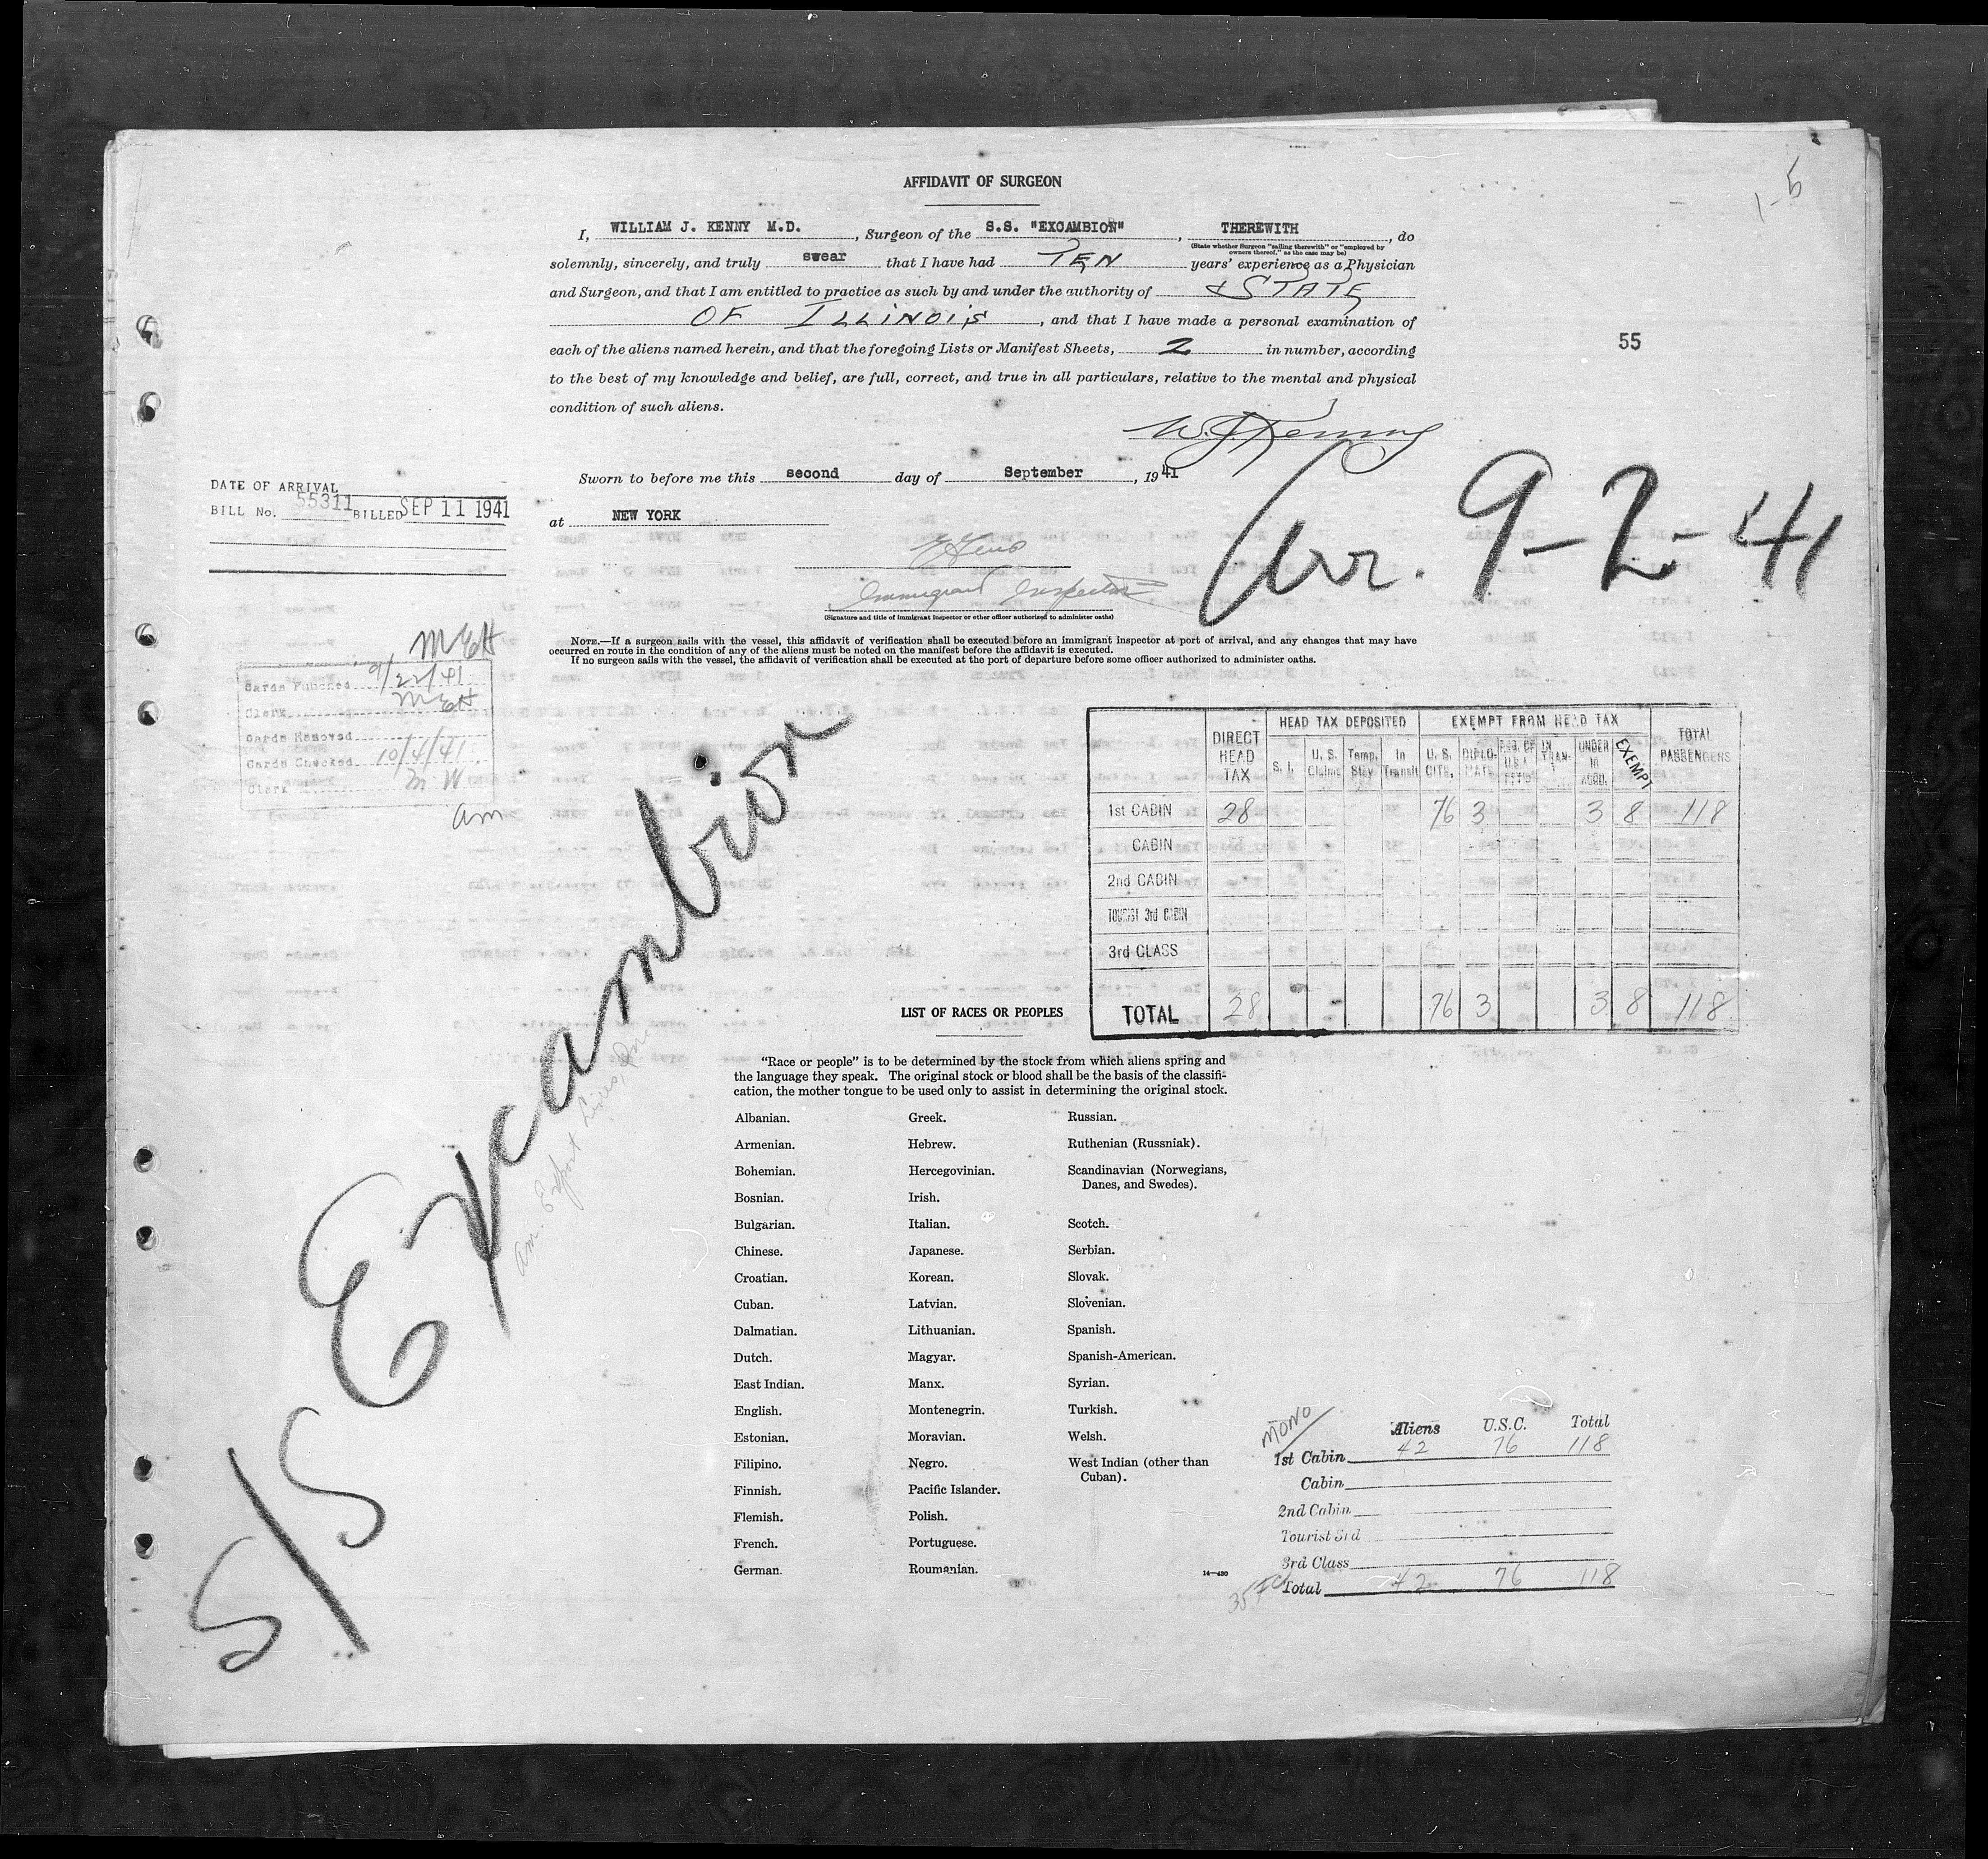 1-5
AFFIDAVIT OF SURGEON
I, WILLIAM J. KENNY M.D. , Surgeon of the S.S. "EXCAMBION" , THEREWITH , do
(State whether Surgeon "sailing therewith" or "employed by
owners thereof," as the case may be)
solemnly, sincerely, and truly swear that I have had TEN years' experience as a Physician
and Surgeon, and that I am entitled to practice as such by and under the authority of STATE
OF ILLINOIS , and that I have made a personal examination of
each of the aliens named herein, and that the foregoing Lists or Manifest Sheets, 2 in number, according
to the best of my knowledge and belief, are full, correct, and true in all particulars, relative to the mental and physical
condition of such aliens.
55
W. J. Kenny
Sworn to before me this second day of September , 1941
at NEW YORK
Immigrant Inspector
(Signature and title of immigrant inspector or other officer authorized to administer oaths)
Arr. 9-2-41
DATE OF ARRIVAL
BILL No. 55311 BILLED SEP 11 1941
NOTE.—If a surgeon sails with the vessel, this affidavit of verification shall be executed before an immigrant inspector at port of arrival, and any changes that may have
occurred en route in the condition of any of the aliens must be noted on the manifest before the affidavit is executed.
If no surgeon sails with the vessel, the affidavit of verification shall be executed at the port of departure before some officer authorized to administer oaths.
MEH
Cards Punched 9/22/41
Clerk MEH
Cards Removed
Cards Checked 10/4/41
Clerk M W
am
S/S Excambion
Am. Export Lines, Inc
DIRECT HEAD TAX
HEAD TAX DEPOSITED
EXEMPT FROM HEAD TAX
TOTAL PASSENGERS
S. I. U. S. Claims Temp. Stay In Transit U. S. CITS. DIPLO-MATS IN TRAN. UNDER 16 ACCD. EXEMPT
1st CABIN 28 76 3 3 8 118
CABIN
2nd CABIN
TOURIST 3rd CABIN
3rd CLASS
TOTAL 28 76 3 3 8 118
LIST OF RACES OR PEOPLES
"Race or people" is to be determined by the stock from which aliens spring and
the language they speak. The original stock or blood shall be the basis of the classifi-
cation, the mother tongue to be used only to assist in determining the original stock.
Albanian.
Armenian.
Bohemian.
Bosnian.
Bulgarian.
Chinese.
Croatian.
Cuban.
Dalmatian.
Dutch.
East Indian.
English.
Estonian.
Filipino.
Finnish.
Flemish.
French.
German.
Greek.
Hebrew.
Hercegovinian.
Irish.
Italian.
Japanese.
Korean.
Latvian.
Lithuanian.
Magyar.
Manx.
Montenegrin.
Moravian.
Negro.
Pacific Islander.
Polish.
Portuguese.
Roumanian.
Russian.
Ruthenian (Russniak).
Scandinavian (Norwegians,
Danes, and Swedes).
Scotch.
Serbian.
Slovak.
Slovenian.
Spanish.
Spanish-American.
Syrian.
Turkish.
Welsh.
West Indian (other than
Cuban).
14—430
MONO
Aliens U.S.C. Total
1st Cabin 42 76 118
Cabin
2nd Cabin
Tourist 3rd
3rd Class
Total 42 76 118